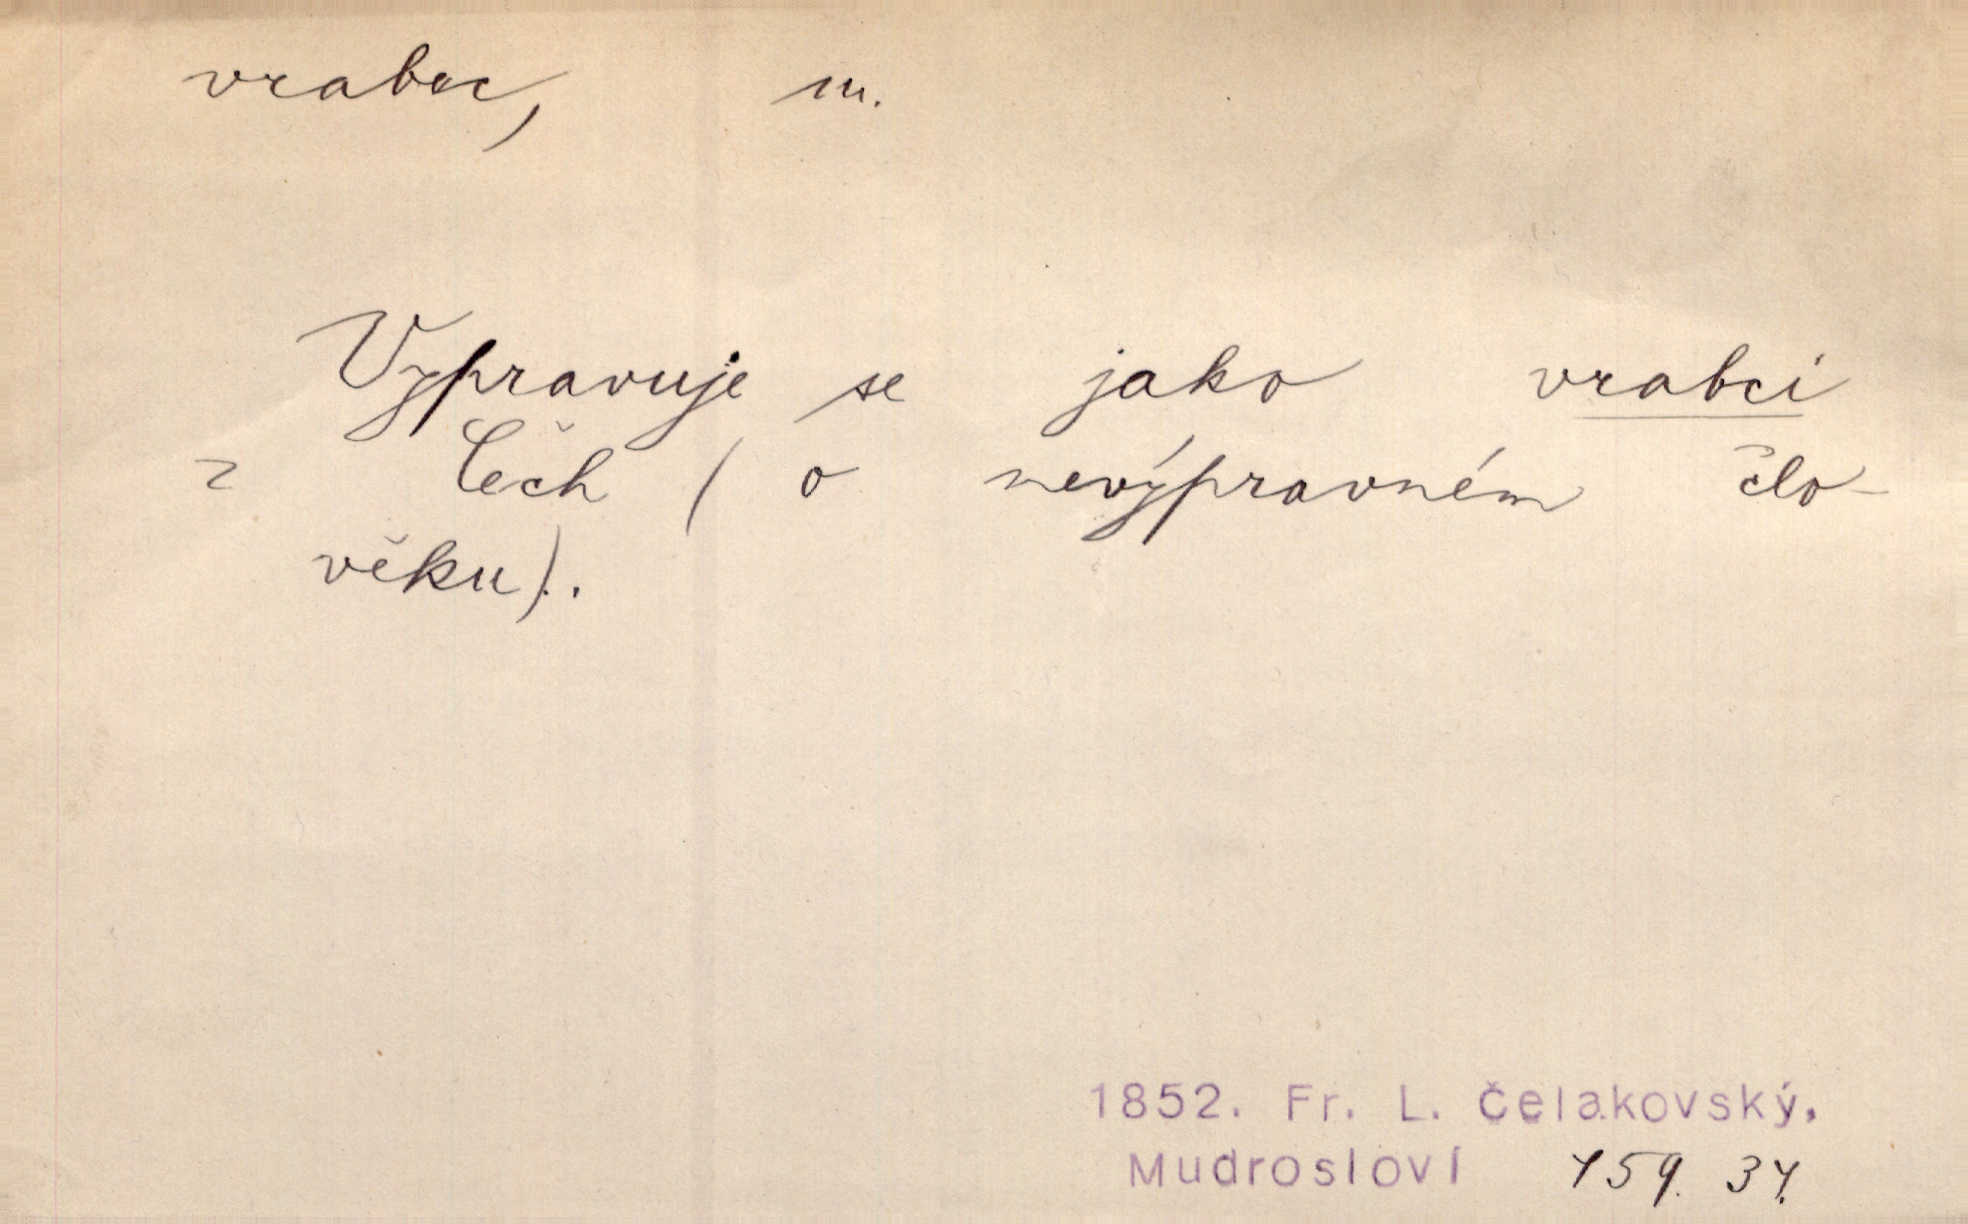 vrabec, m.
Vypravuje se jako vrabci
z Čech (o nevýpravném člo-
věku).
1852. Fr. L. Čelakovský,
Mudrosloví 159. 34.